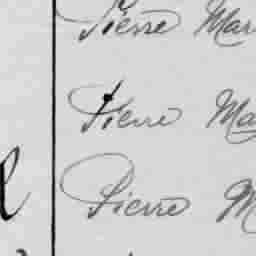 Pierre Mar
Pierre Ma
Pierre M